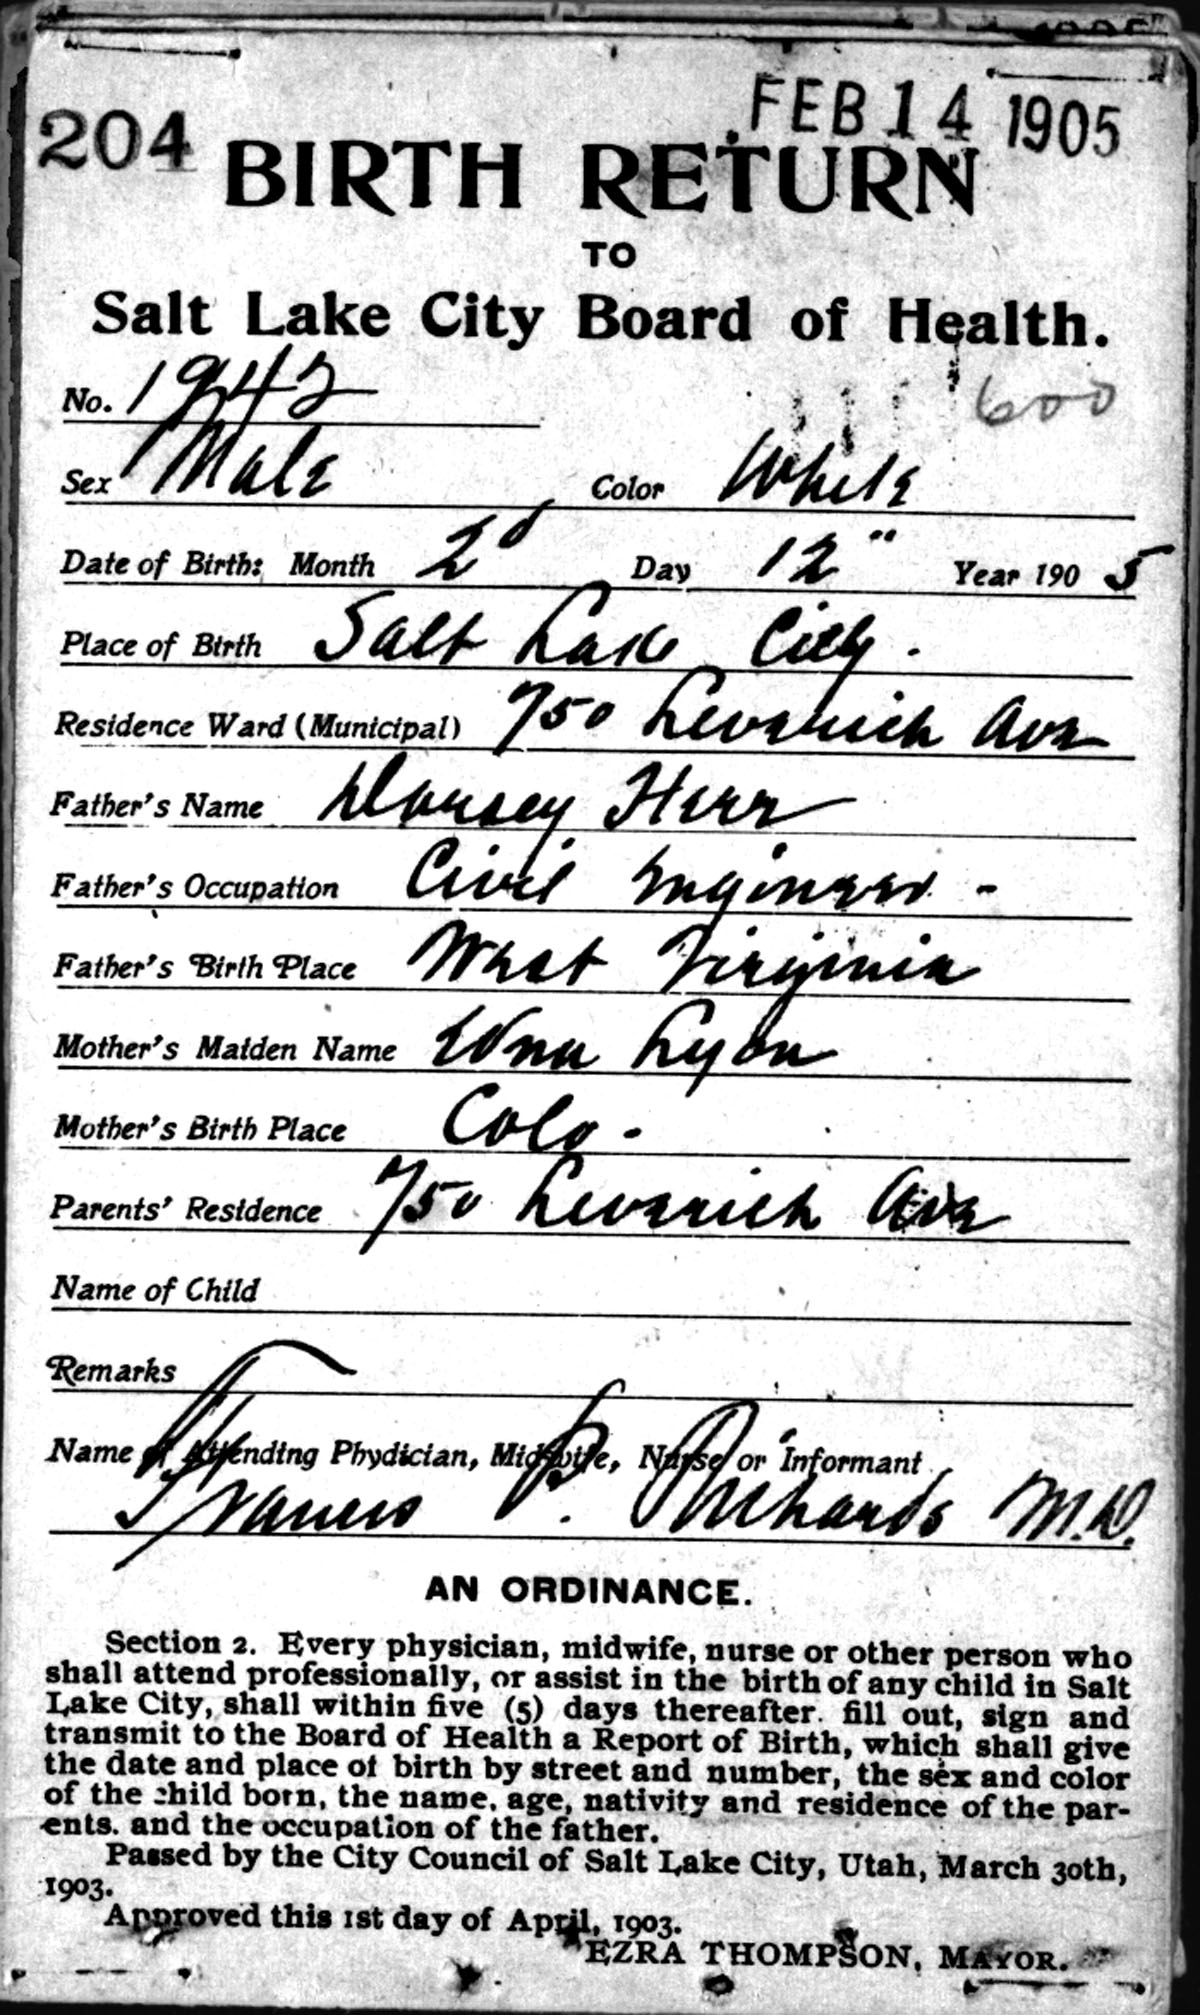 FEB 14 1905
204
BIRTH RETURN
TO
Salt Lake City Board of Health.
No. 1942
600
Sex Male Color White
Date of Birth: Month 2d Day 12" Year 1905
Place of Birth Salt Lake City.
Residence Ward (Municipal) 750 Leverich Ave
Father's Name Dorsey Herr
Father's Occupation Civil Engineer -
Father's Birth Place West Virginia
Mother's Maiden Name Edna Lyon
Mother's Birth Place Colo -
Parents' Residence 750 Leverich Ave
Name of Child
Remarks
Name of Attending Phydician, Midwife, Nurse or Informant
Francis P. Richards M.D.
AN ORDINANCE.
Section 2. Every physician, midwife, nurse or other person who
shall attend professionally, or assist in the birth of any child in Salt
Lake City, shall within five (5) days thereafter. fill out, sign and
transmit to the Board of Health a Report of Birth, which shall give
the date and place of birth by street and number, the sex and color
of the child born, the name, age, nativity and residence of the par-
ents. and the occupation of the father.
Passed by the City Council of Salt Lake City, Utah, March 30th,
1903.
Approved this 1st day of April, 1903.
EZRA THOMPSON, MAYOR.